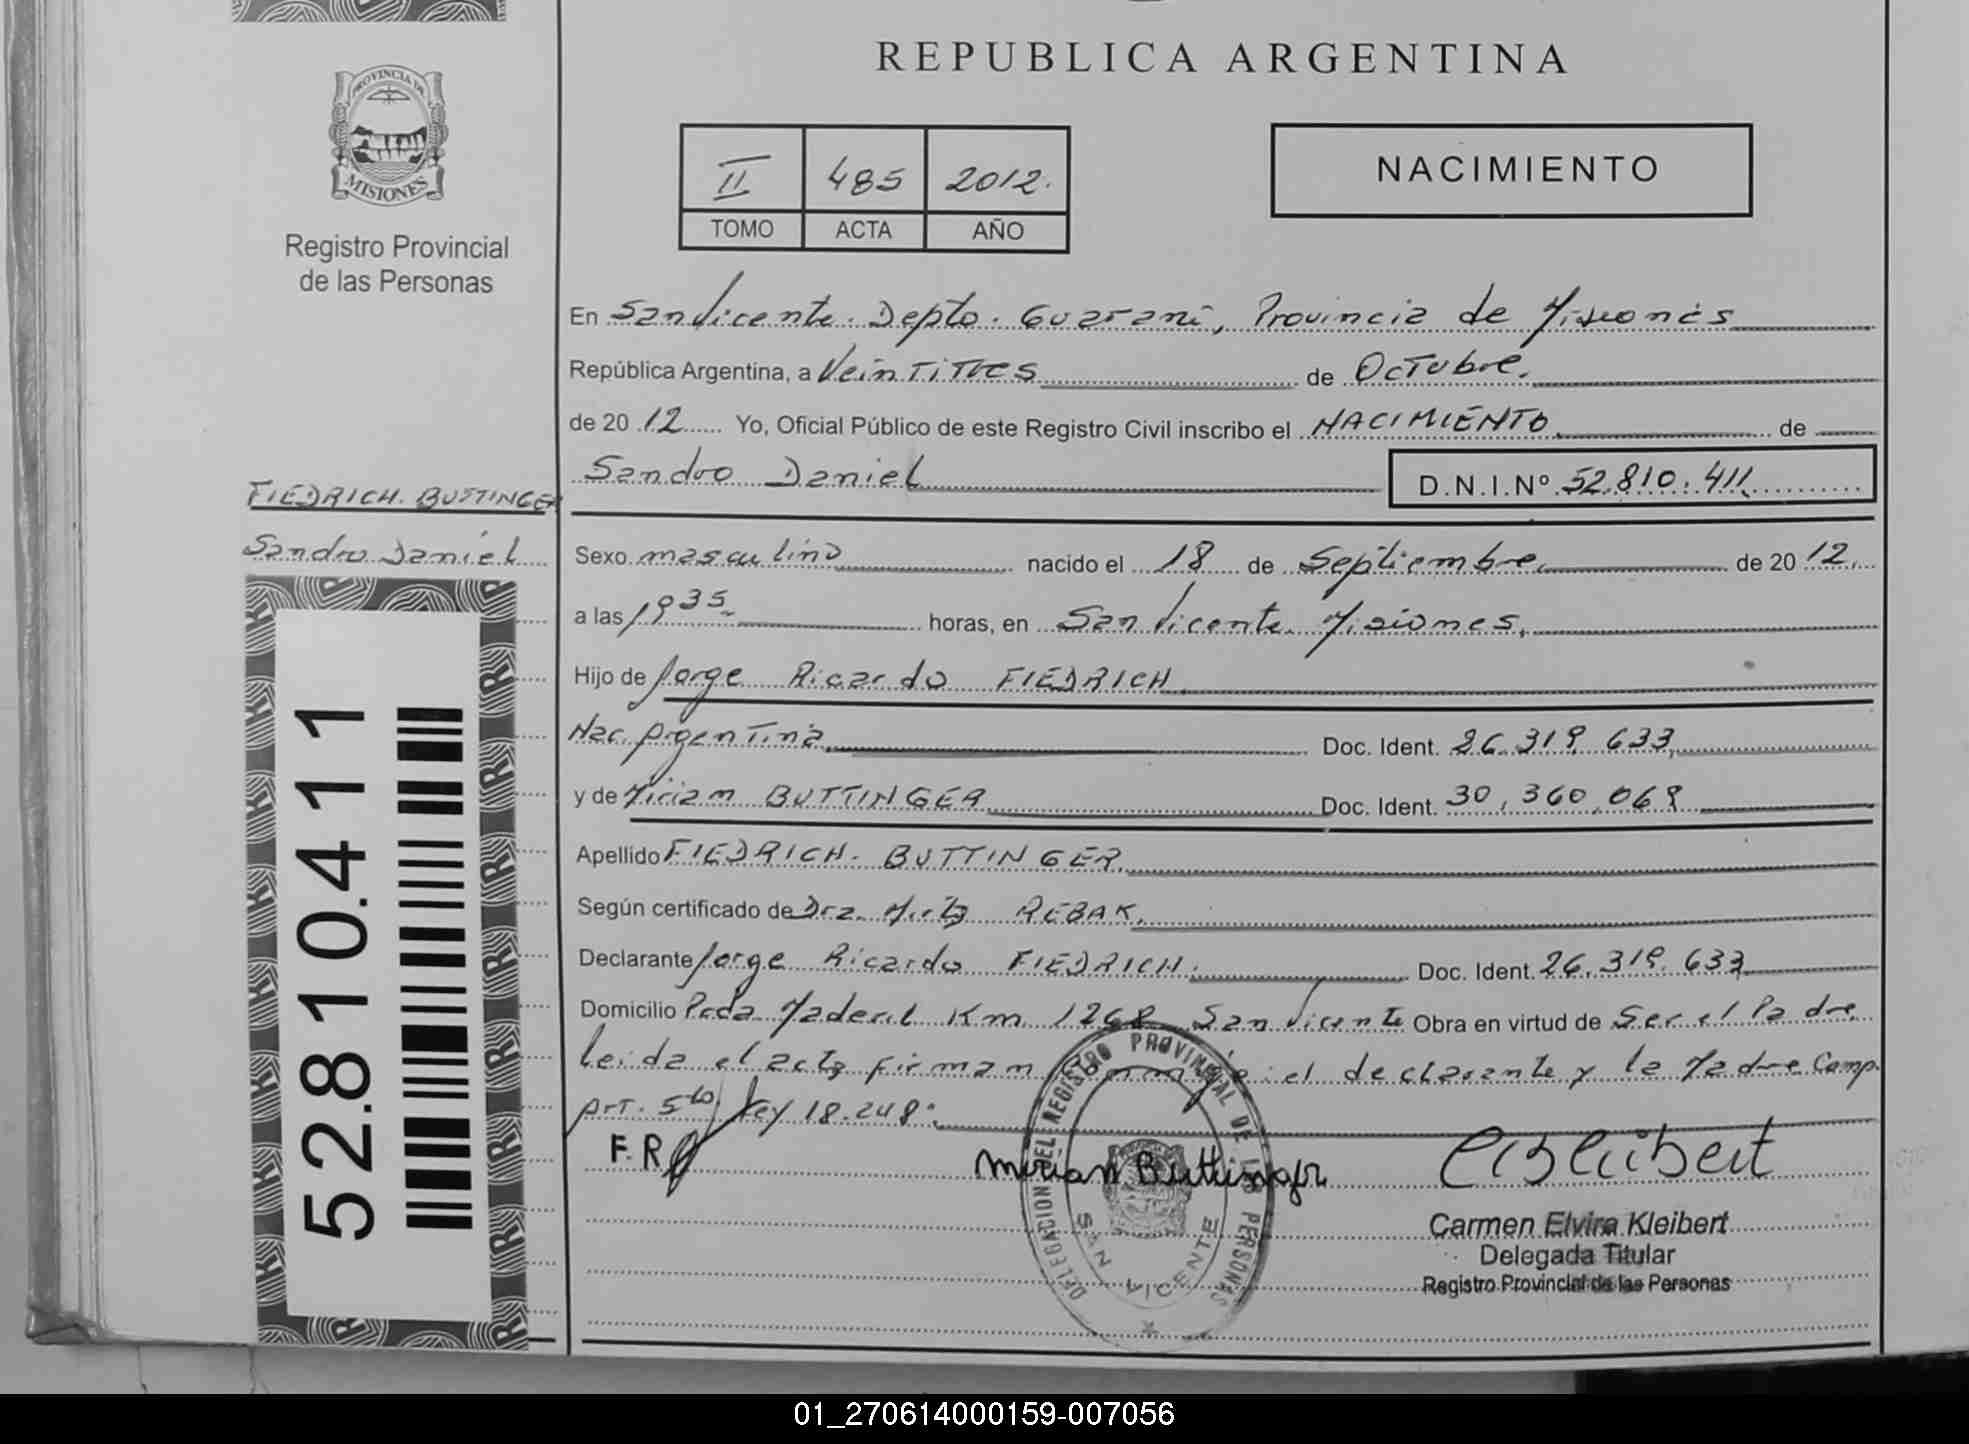 REPUBLICA ARGENTINA
PROVINCIA DE
MISIONES
Registro Provincial
de las Personas
II 485 2012.
TOMO ACTA AÑO
NACIMIENTO
En San Vicente. Depto. Guaraní, Provincia de Misiones
República Argentina, a Veintitres de Octubre.
de 20 12 Yo, Oficial Público de este Registro Civil inscribo el NACIMIENTO de
Sandro Daniel D.N.I.Nº 52.810.411
FIEDRICH. BUTTINGER
Sandro Daniel
52.810.411
Sexo masculino nacido el 18 de Septiembre de 20 12.
a las 19 35 horas, en San Vicente. Misiones.
Hijo de Jorge Ricardo FIEDRICH.
Nac. Argentina Doc. Ident. 26.319.633
y de Miriam BUTTINGER Doc. Ident. 30.360.069
Apellido FIEDRICH. BUTTINGER.
Según certificado de Dra. Mirta REBAK.
Declarante Jorge Ricardo FIEDRICH. Doc. Ident. 26.319.633
Domicilio Pcda. Maderil Km 1268 San Vicente Obra en virtud de Ser el Padre
leida el acta firman el declarante y la Madre Comp.
Art. 5to Ley 18.248.
F.R
Mirian Buttinger
CEKleibert
Carmen Elvira Kleibert
Delegada Titular
Registro Provincial de las Personas
DELEGACION DEL REGISTRO PROVINCIAL DE LAS PERSONAS
SAN VICENTE
01_270614000159-007056